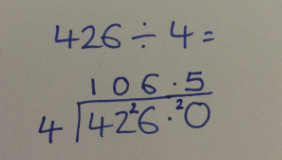 426 ÷ 4 =
106.5
4 42²6.²0